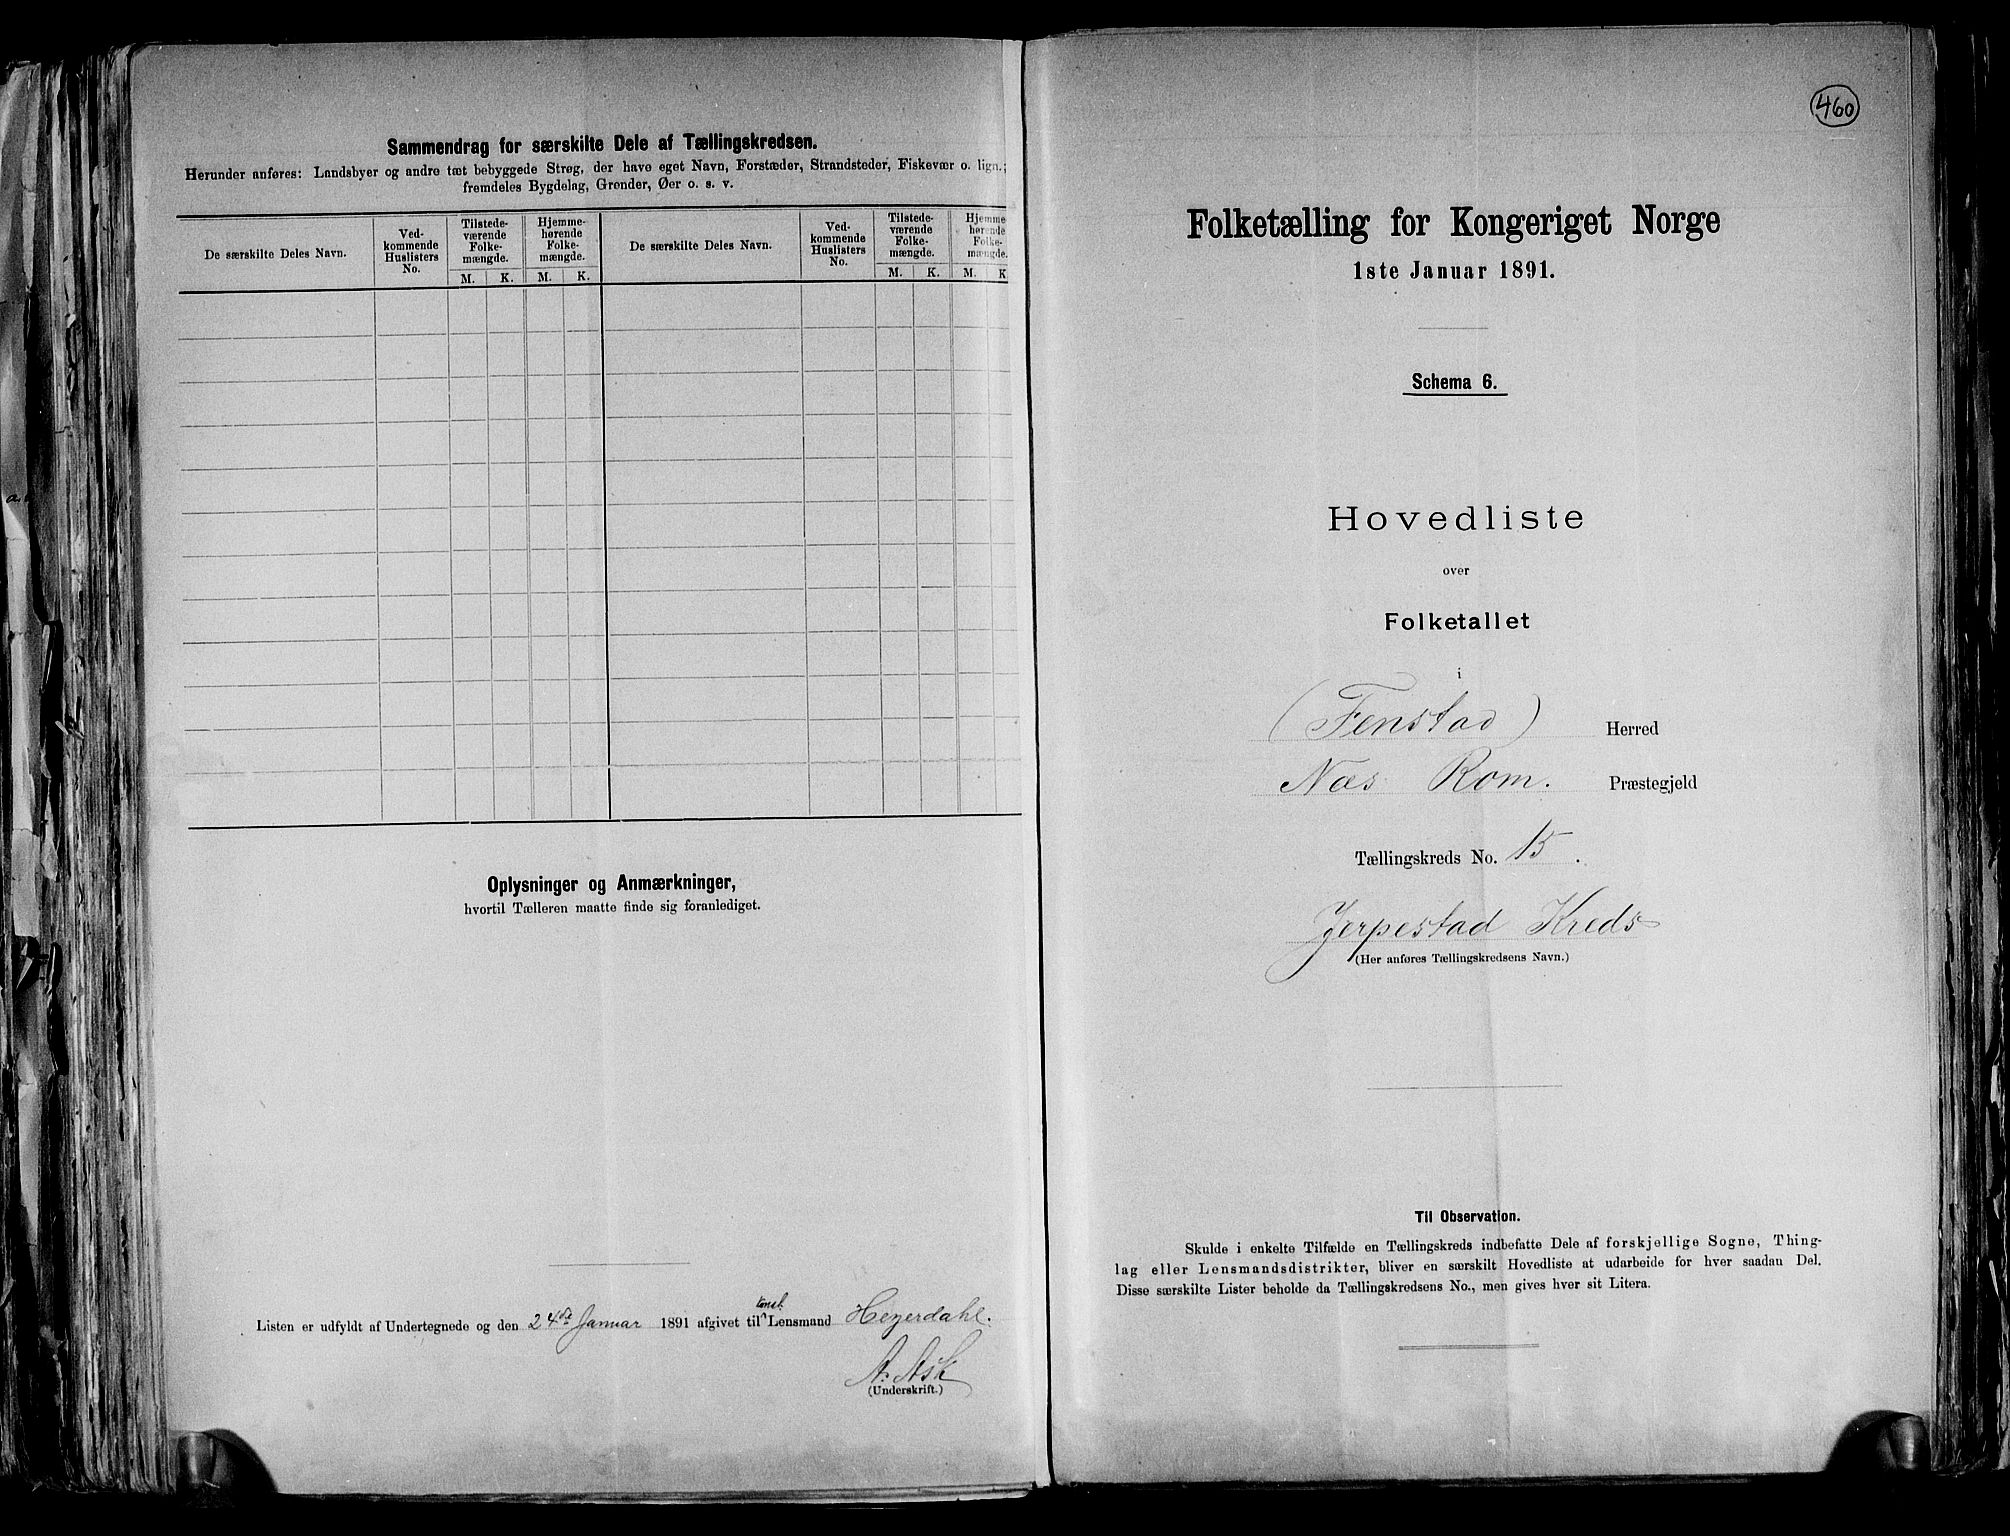 Sammendrag for særskilte Dele af Tællingskredsen.
Herunder anføres: Landsbyer og andre tæt bebyggede Strøg, der have eget Navn, Forstæder, Strandsteder, Fiskevær o. lign.;
fremdeles Bygdelag, Grender, Øer o. s. v.
De særskilte Deles Navn.
Ved-
kommende
Huslisters
No.
Tilstede-
værende
Folke-
mængde.
Hjemme-
hørende
Folke-
mængde.
M. K. M. K.
De særskilte Deles Navn.
Ved-
kommende
Huslisters
No.
Tilstede-
værende
Folke-
mængde.
Hjemme-
hørende
Folke-
mængde.
M. K. M. K
Oplysninger og Anmærkninger,
hvortil Tælleren maatte finde sig foranlediget.
Listen er udfyldt af Undertegnede og den 24de Januar 1891 afgivet til konst. Lensmand Heyerdahl.
A. Ask
(Underskrift.)
460
Folketælling for Kongeriget Norge
1ste Januar 1891.
Schema 6.
Hovedliste
over
Folketallet
i
(Fenstad) Herred
Næs Rom. Præstegjeld
Tællingskreds No. 15.
Jerpestad Kreds
(Her anføres Tællingskredsens Navn.)
Til Observation.
Skulde i enkelte Tilfælde en Tællingskreds indbefatte Dele af forskjellige Sogne, Thing-
lag eller Lensmandsdistrikter, bliver en særskilt Hovedliste at udarbeide for hver saadan Del.
Disse særskilte Lister beholde da Tællingskredsens No., men gives hver sit Litera.